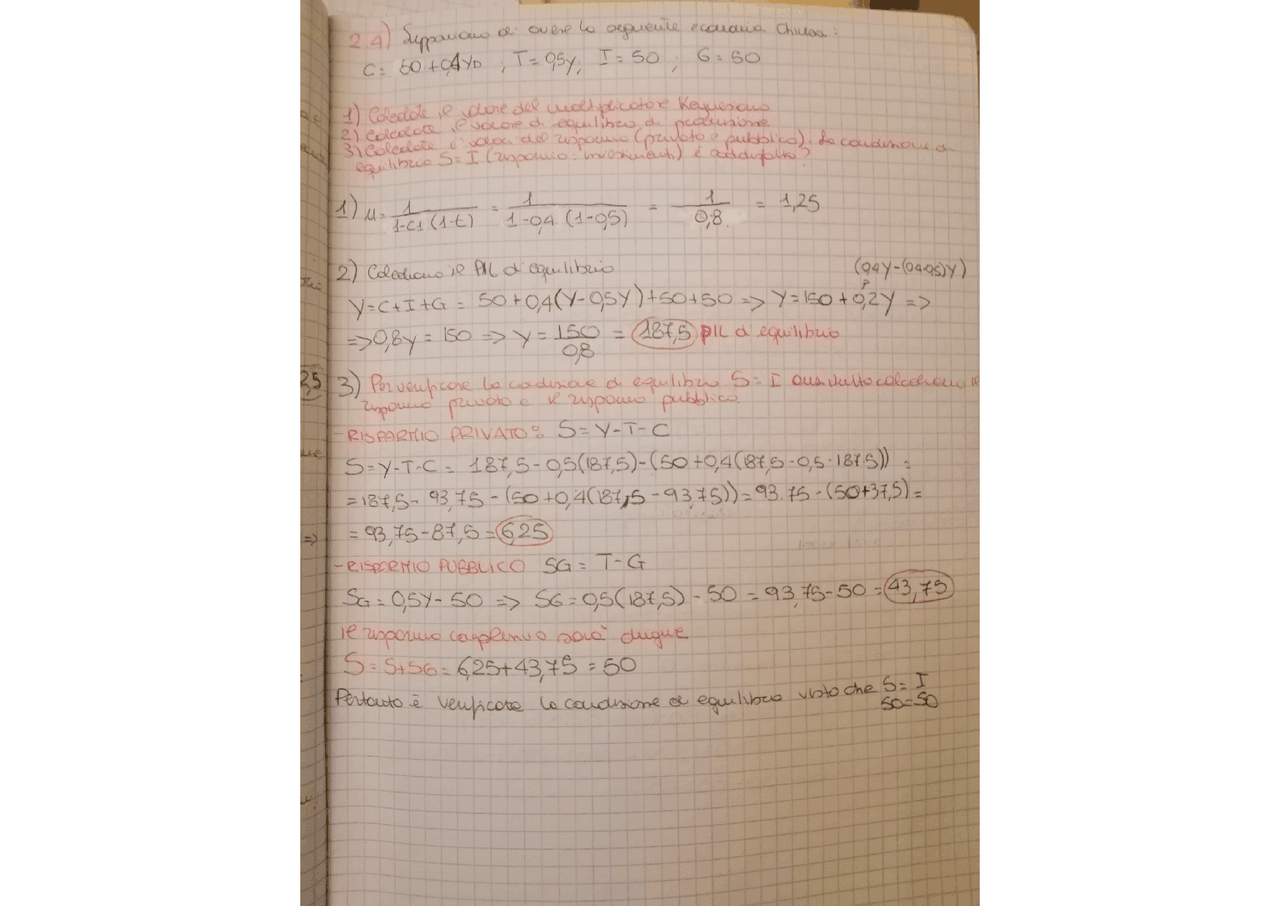 2.4) Supponiamo di avere la seguente economia chiusa:
C= 50+0,4YD , T= 0,5Y, I=50 ; G=50
1) Calcolate il valore del moltiplicatore Keynesiano
2) Calcolate il valore di equilibrio di produzione
3) Calcolate i valori del risparmio (privato e pubblico). La condizione di
equilibrio S=I (risparmio=investimenti) è soddisfatta?
1) μ= 1/(1-C1(1-t)) = 1/(1-0,4(1-0,5)) = 1/0,8 = 1,25
2) Calcoliamo il PIL di equilibrio (0,4Y-(0,4·0,5)Y)
Y=C+I+G = 50+0,4(Y-0,5Y)+50+50 => Y=150+0,2Y =>
=>0,8Y=150 => Y=150/0,8 = 187,5 PIL di equilibrio
2,5 3) Per verificare la condizione di equilibrio S=I calcoliamo il
risparmio privato e il risparmio pubblico
-RISPARMIO PRIVATO: S=Y-T-C
S=Y-T-C= 187,5-0,5(187,5)-(50+0,4(187,5-0,5·187,5)) =
=187,5-93,75-(50+0,4(187,5-93,75))=93.75-(50+37,5)=
= 93,75-87,5=6,25
-RISPARMIO PUBBLICO SG= T-G
SG=0,5Y-50 => SG=0,5(187,5)-50=93,75-50=43,75
Il risparmio complessivo sarà dunque
S=S+SG=6,25+43,75=50
Pertanto è verificata la condizione di equilibrio visto che S=I
50=50